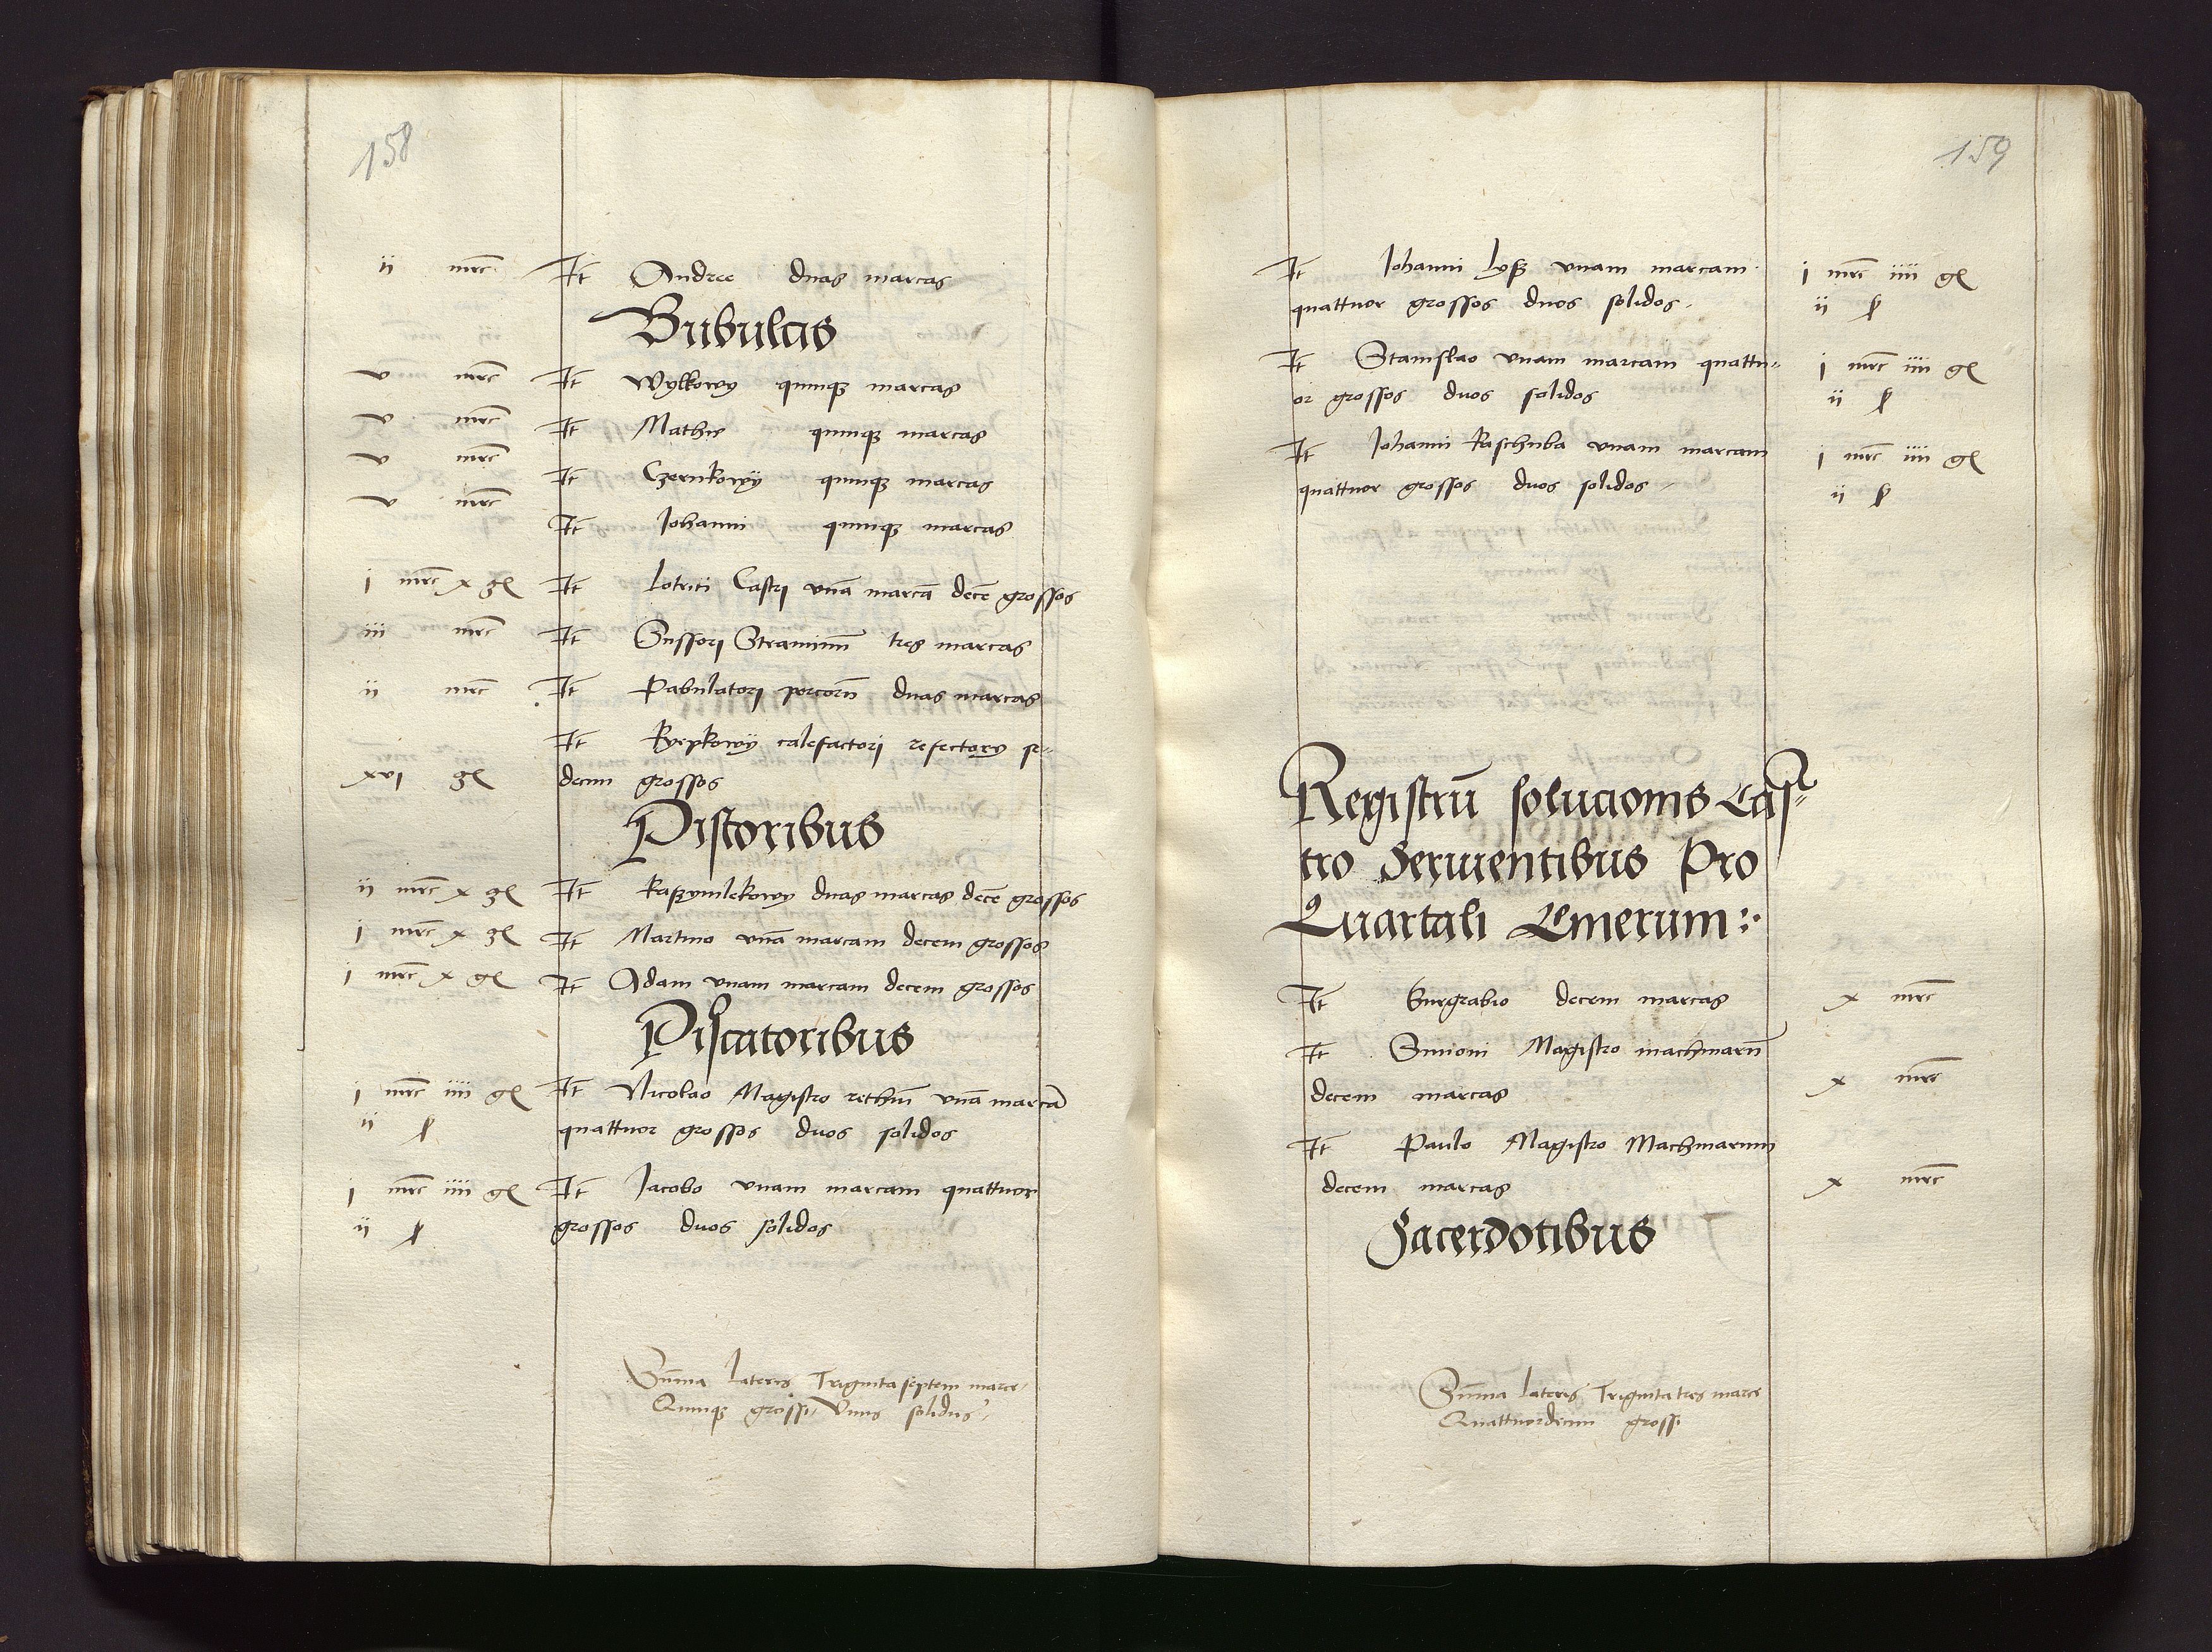 158
ij mrc It Andree duas marcas
Bubulcis
v mrc It Wylkowy quinqz marcas
v mrc It Mathie quinqz marcas
v mrc It Czernkowy quinqz marcas
v mrc It Johanni quinqz marcas
j mrc x gł It Lotriti Castri vnā marcā decē grossos
iij mrc It Sussori Straminū tres marcas
ij mrc It Pabulatori porcorū duas marcas
It Kyepkowy calefactori refectory se=
xvj gł decim grossos
Pistoribus
ij mrc x gł It Kaszymlekowy duas marcas decē grossos
j mrc x gł It Martino vnā marcam decem grossos
j mrc x gł It Adam vnam marcam decem grossos
Piscatoribus
j mrc iiij gł It Nicolao Magistro rethiū vnā marcā
ij ꝭ quattuor grossos duos solidos
j mrc iiij gł It Jacobo vnam marcam quattuor
ij ꝭ grossos duos solidos
Sūma Lateris Triginta septem marce
Quinqz grossi Vnus solidus
159
It Johanni Lysz vnam marcam j mrc iiij gł
quattuor grossos duos solidos ij ꝭ
It Stanislao vnam marcam quattu= j mrc iiij gł
or grossos duos solidos ij ꝭ
It Johanni Kaschuba vnam marcam j mrc iiij gł
quattuor grossos duos solidos ij ꝭ
Registrū solucionis Cas=
tro Seruientibus Pro
Quartali Cinerum
It Burgrabio decem marcas x mrc
It Simoni Magistro machinarū
decem marcas x mrc
It Paulo Magistro Machinarum
decem marcas x mrc
Sacerdotibus
Sūma Lateris Triginta tres marce
Quattuordecim grossi